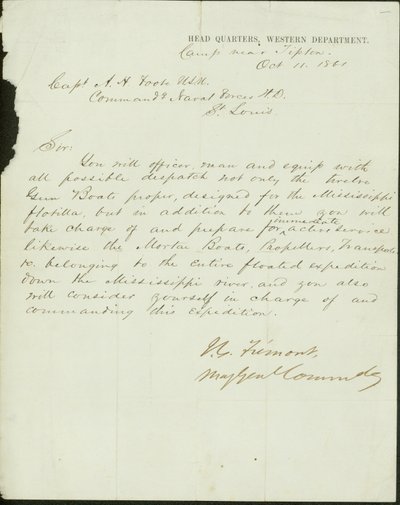 HEAD QUARTERS, WESTERN DEPARTMENT.
Camp near Tipton.
Oct 11. 1861
Capt A. H. Foote USN.
Command'g Naval Forces W.D.
St. Louis.
Sir:
You will officer, man and equip with
all possible despatch not only the twelve
Gun Boats proper, designed for the Mississippi
flotilla, but in addition to them you will
immediate
take charge of and prepare for active service
likewise the Mortar Boats, Propellers, Transports
&c. belonging to the entire floated expedition
down the Mississippi river, and you also
will consider yourself in charge of and
commanding this Expedition.
J. C. Frémont,
Maj Genl Commdg